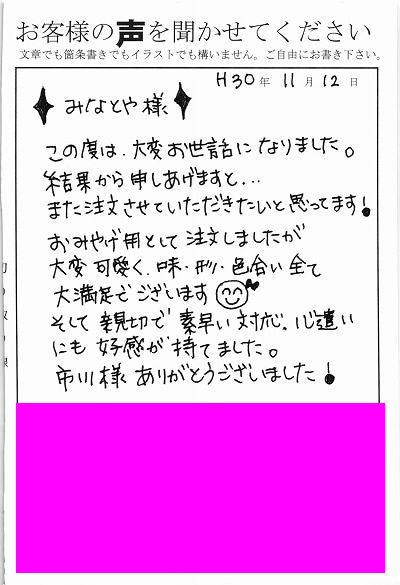 お客様の声を聞かせてください
文章でも箇条書きでもイラストでも構いません。ご自由にお書き下さい。
H30年 11月 12日
みなとや様
この度は、大変お世話になりました。
結果から申しあげますと...
また注文させていただきたいと思ってます!
おみやげ用として注文しましたが
大変可愛く、味・形・色合い全て
大満足でございます
そして親切で素早い対応、心遣い
にも好感が持てました。
市川様ありがとうございました!